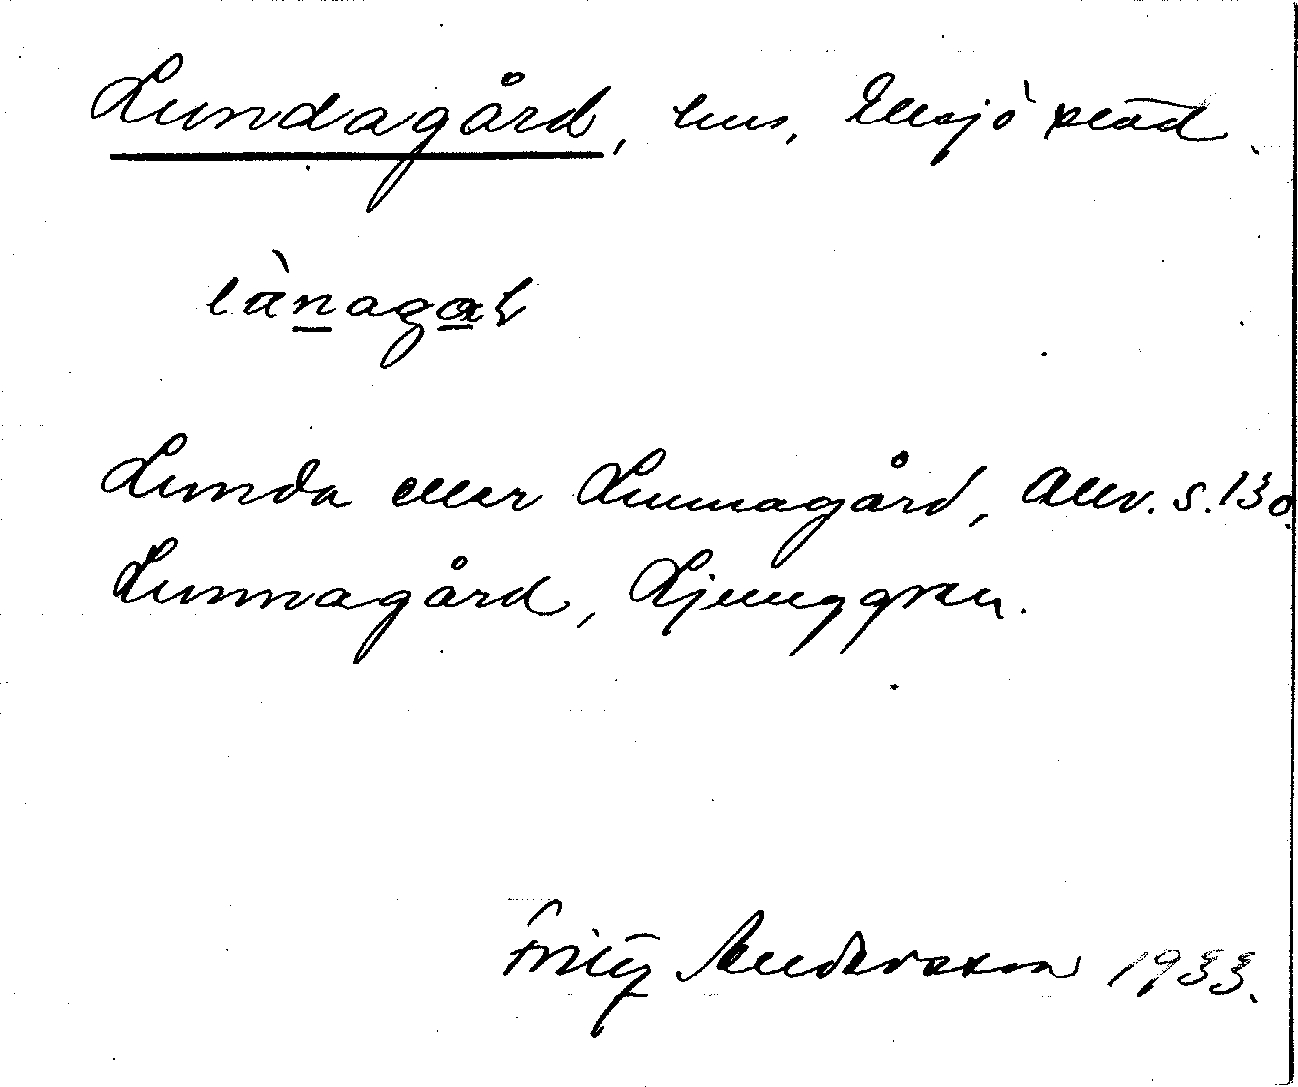 Lundagård, hus, Elesjö stad.
lànagaḷ
Lunda eller Lunnagård, Allv. s. 130.
Lunnagård, Ljunggren.
Fritz Andersson 1933.